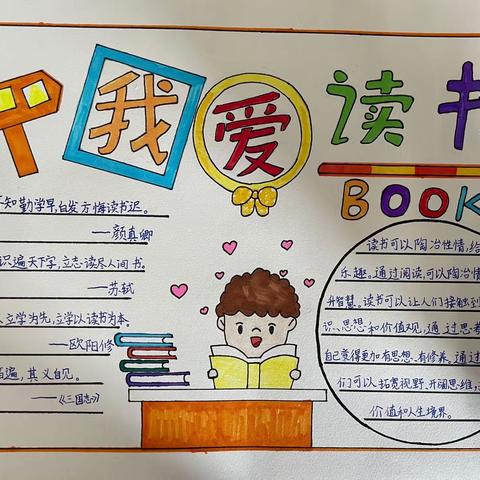 我爱读书
BOOK
知勤学早,白发方悔读书迟。
——颜真卿
识遍天下字,立志读尽人间书
——苏轼
立学为先,立学以读书为本。
——欧阳修
遍,其义自见。
——《三国志》
读书可以陶冶性情,给
乐趣。通过阅读,可以陶冶情
升智慧。读书可以让人们接触到
识、思想和价值观,通过思考
自己变得更加有思想、有修养。通过
们可以拓宽视野,开阔思维,
价值和人生境界。